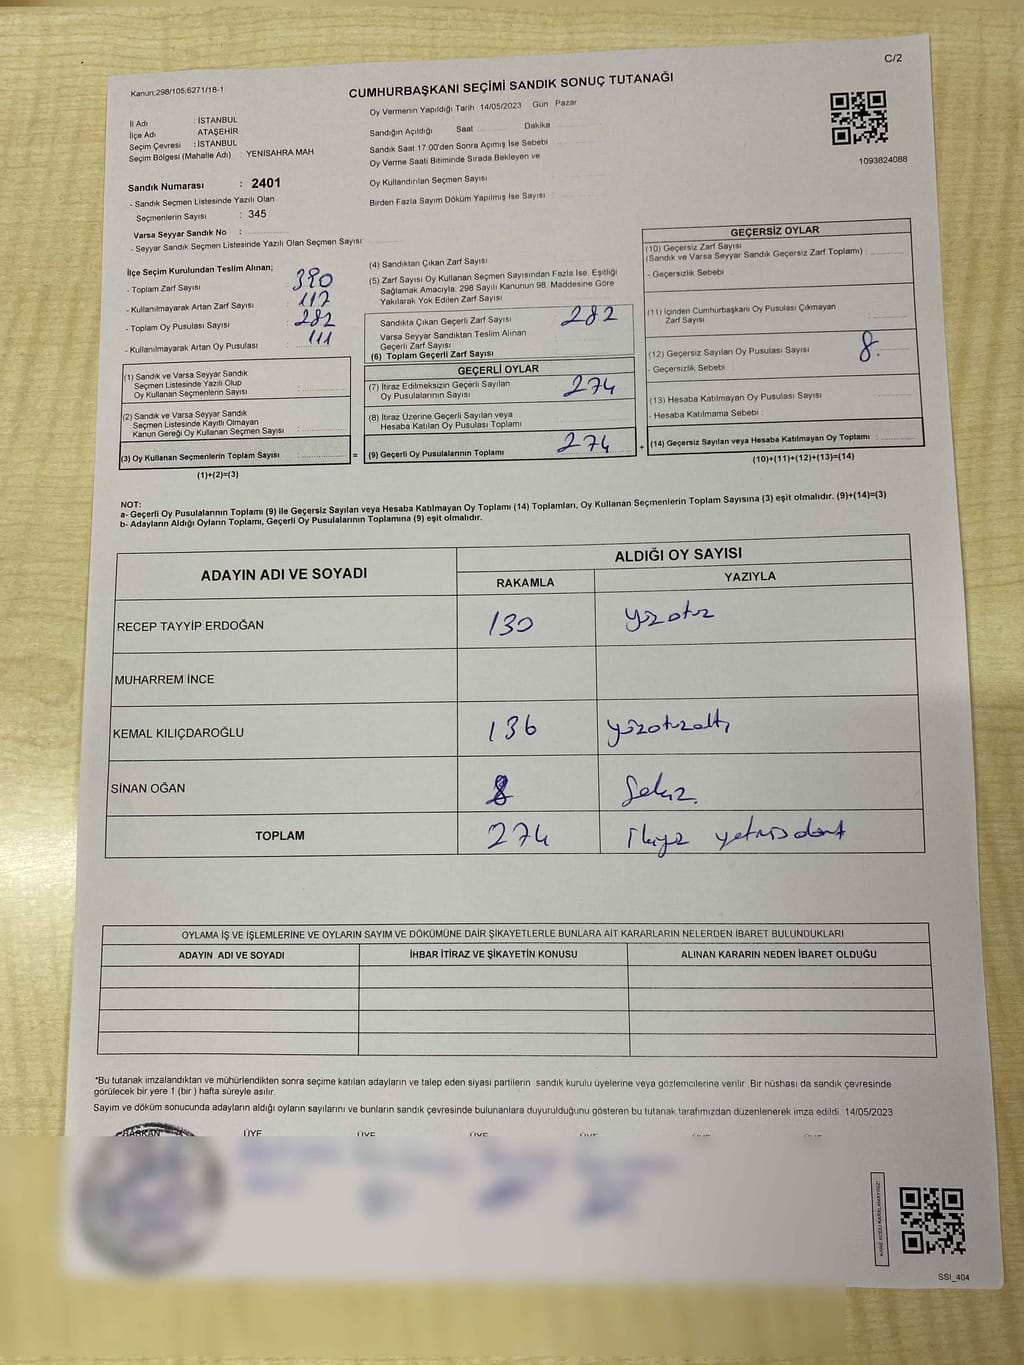 C/2
Kanun:298/105,6271/18-1
CUMHURBAŞKANI SEÇİMİ SANDIK SONUÇ TUTANAĞI
İl Adı : İSTANBUL
İlçe Adı ATAŞEHİR
Seçim Çevresi : İSTANBUL
Seçim Bölgesi (Mahalle Adı) : YENİSAHRA MAH.
Oy Vermenin Yapıldığı Tarih 14/05/2023 Gün Pazar
Sandığın Açıldığı Saat Dakika
Sandık Saat 17.00'den Sonra Açımış İse Sebebi
Oy Verme Saati Bitiminde Sırada Bekleyen ve
Oy Kullandırılan Seçmen Sayısı
Birden Fazla Sayım Döküm Yapılmış İse Sayısı :
1093824088
Sandık Numarası : 2401
- Sandık Seçmen Listesinde Yazılı Olan
Seçmenlerin Sayısı : 345
Varsa Seyyar Sandık No :
- Seyyar Sandık Seçmen Listesinde Yazılı Olan Seçmen Sayısı:
İlçe Seçim Kurulundan Teslim Alınan;
- Toplam Zarf Sayısı : 390
- Kullanılmayarak Artan Zarf Sayısı : 117
- Toplam Oy Pusulası Sayısı : 282
- Kullanılmayarak Artan Oy Pusulası : 111
(1) Sandık ve Varsa Seyyar Sandık
Seçmen Listesinde Yazılı Olup
Oy Kullanan Seçmenlerin Sayısı :
(2) Sandık ve Varsa Seyyar Sandık
Seçmen Listesinde Kayıtlı Olmayan
Kanun Gereği Oy Kullanan Seçmen Sayısı :
(3) Oy Kullanan Seçmenlerin Toplam Sayısı : =
(1)+(2)=(3)
(4) Sandıktan Çıkan Zarf Sayısı
(5) Zarf Sayısı Oy Kullanan Seçmen Sayısından Fazla İse, Eşitliği
Sağlamak Amacıyla, 298 Sayılı Kanunun 98. Maddesine Göre
Yakılarak Yok Edilen Zarf Sayısı
Sandıkta Çıkan Geçerli Zarf Sayısı 282
Varsa Seyyar Sandıktan Teslim Alınan
Geçerli Zarf Sayısı
(6) Toplam Geçerli Zarf Sayısı
GEÇERLİ OYLAR
(7) İtiraz Edilmeksizin Geçerli Sayılan
Oy Pusulalarının Sayısı 274
(8) İtiraz Üzerine Geçerli Sayılan veya
Hesaba Katılan Oy Pusulası Toplamı
(9) Geçerli Oy Pusulalarının Toplamı 274 +
GEÇERSİZ OYLAR
(10) Geçersiz Zarf Sayısı
(Sandık ve Varsa Seyyar Sandık Geçersiz Zarf Toplamı) :
- Geçersizlik Sebebi
(11) İçinden Cumhurbaşkanı Oy Pusulası Çıkmayan
Zarf Sayısı
(12) Geçersiz Sayılan Oy Pusulası Sayısı : 8.
- Geçersizlik Sebebi
(13) Hesaba Katılmayan Oy Pusulası Sayısı
- Hesaba Katılmama Sebebi :
(14) Geçersiz Sayılan veya Hesaba Katılmayan Oy Toplamı :
(10)+(11)+(12)+(13)=(14)
NOT:
a- Geçerli Oy Pusulalarının Toplamı (9) ile Geçersiz Sayılan veya Hesaba Katılmayan Oy Toplamı (14) Toplamları, Oy Kullanan Seçmenlerin Toplam Sayısına (3) eşit olmalıdır. (9)+(14)=(3)
b- Adayların Aldığı Oyların Toplamı, Geçerli Oy Pusulalarının Toplamına (9) eşit olmalıdır.
ADAYIN ADI VE SOYADI ALDIĞI OY SAYISI
RAKAMLA YAZIYLA
RECEP TAYYİP ERDOĞAN 130 yüzotuz
MUHARREM İNCE
KEMAL KILIÇDAROĞLU 136 yüzotuzaltı
SİNAN OĞAN 8 Sekiz.
TOPLAM 274 ikiyüz yetmişdört
OYLAMA İŞ VE İŞLEMLERİNE VE OYLARIN SAYIM VE DÖKÜMÜNE DAİR ŞİKAYETLERLE BUNLARA AİT KARARLARIN NELERDEN İBARET BULUNDUKLARI
ADAYIN ADI VE SOYADI İHBAR İTİRAZ VE ŞİKAYETİN KONUSU ALINAN KARARIN NEDEN İBARET OLDUĞU
*Bu tutanak imzalandıktan ve mühürlendikten sonra seçime katılan adayların ve talep eden siyasi partilerin sandık kurulu üyelerine veya gözlemcilerine verilir. Bir nüshası da sandık çevresinde
görülecek bir yere 1 (bir ) hafta süreyle asılır.
Sayım ve döküm sonucunda adayların aldığı oyların sayılarını ve bunların sandık çevresinde bulunanlara duyurulduğunu gösteren bu tutanak tarafımızdan düzenlenerek imza edildi. 14/05/2023
BAŞKAN ÜYE ÜYE ÜYE ÜYE ÜYE ÜYE
KARE KODU KARALAMAYINIZ!
SSI_404